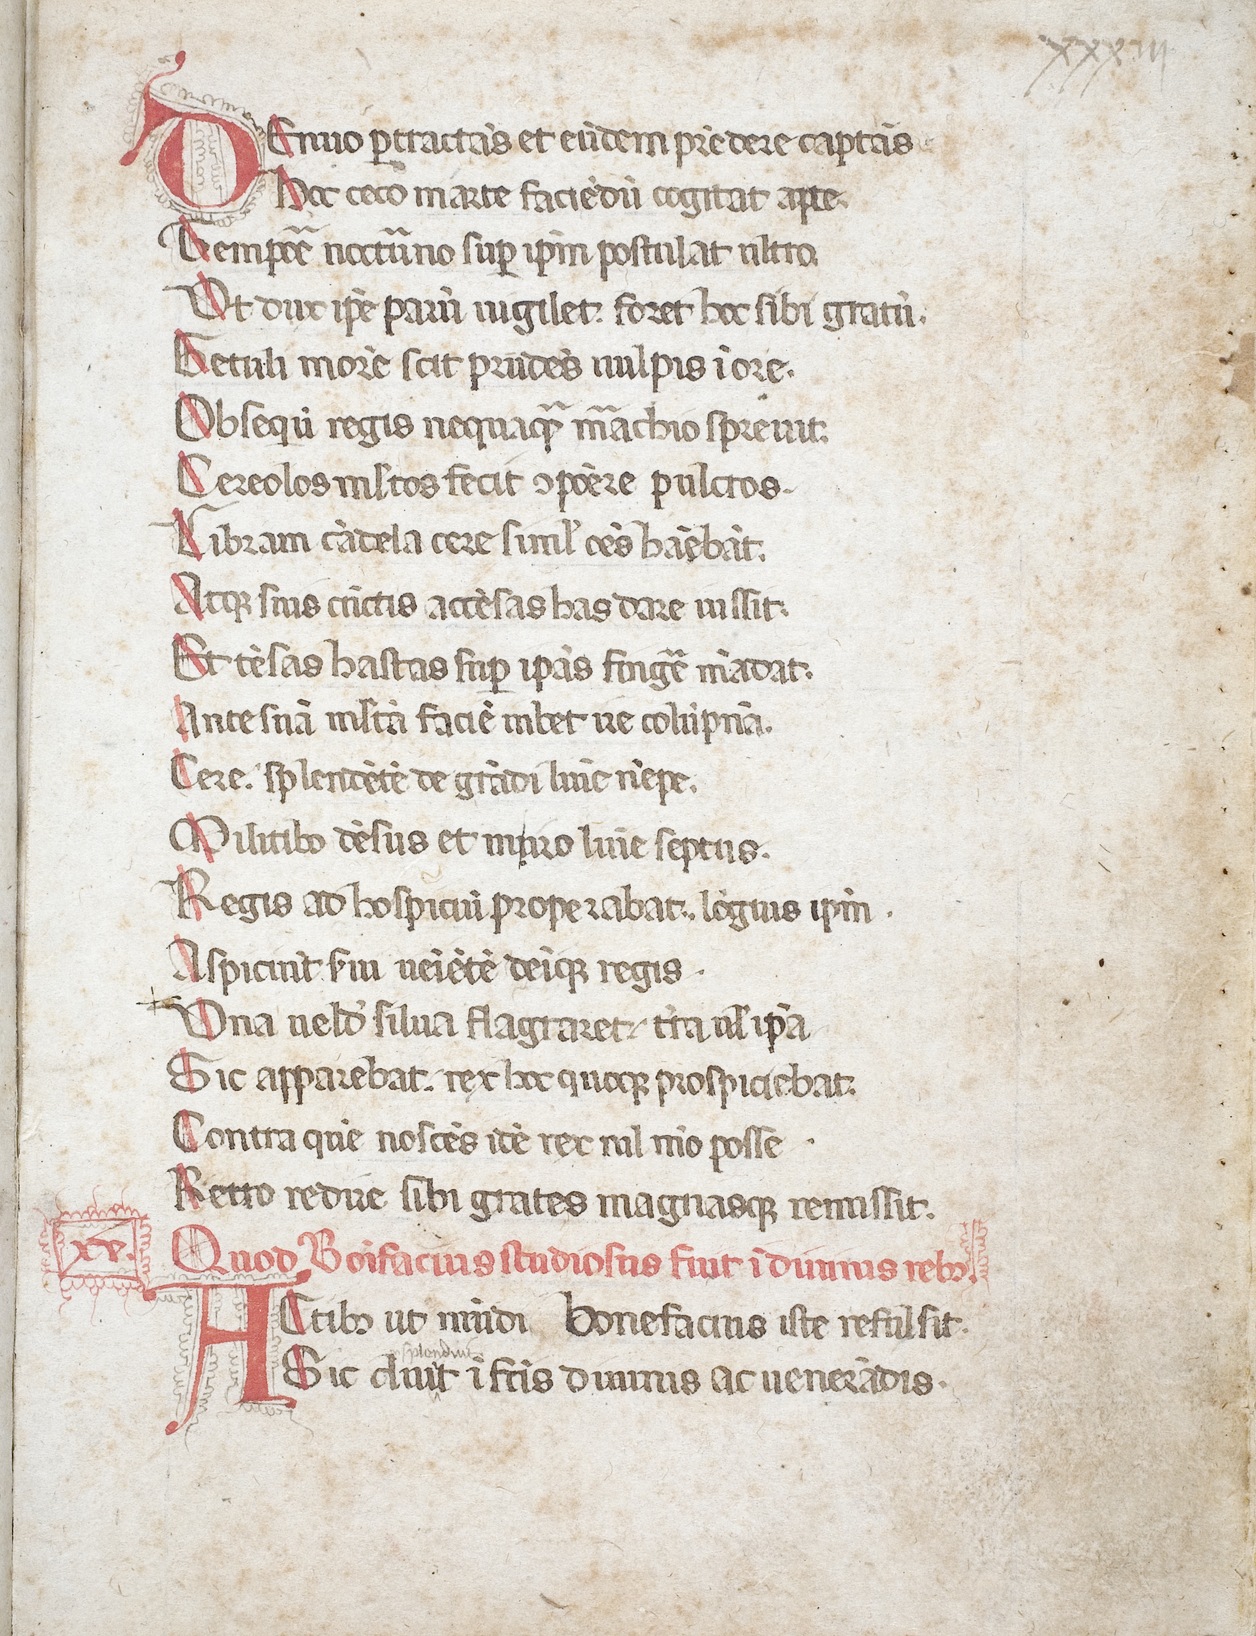 xxxiii
DEnuo ꝑtractās et eūdem prēdere captās
Hoc ceco marte faciēdū cogitat apte.
Tempore nocturno suꝑ ipm̄ postulat ultro.
Vt dux ipē parū uigilet. foret hoc sibi gratū.
Getuli more scit prudēs uulpis ī ore.
Obsequi regis nequaqͣ mͣchio spreuit.
Cereolos multos fecit ꝯpōere pulcros.
Libram cādela cere simul oēs hābebāt.
Atqꝫ suis cūctis accēsas has dare iussit.
Et tēsas hastas suꝑ ipās fingē mādat.
Ante suā multā faciē iubet ire colūpnā.
Cere. splendētē de grādi luīe nēpe.
Militibꝫ dēsus et miro luīe septus.
Regis ad hospiciū properabat. lōgius ipm̄ .
Aspiciūt uēiētē dēiqꝫ regis .
Vna uelud silua flagraret. tͣra ul ipā
Sic apparebat. rex hoc quoqꝫ prospiciebat.
Contra quē noscēs idē rex nil mīo posse .
Retro redire sibi grates magnasqꝫ remissit.
xv. Quod Boīfacius studiosus fuit ī diuinis rebꝫ.
ACtibꝫ ut mūdi bonefacius iste refulsit.
splenduit
Sic cluit ī fcīs diuinis ac uenerādis.